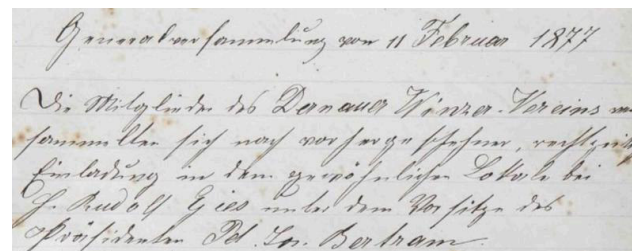 Generalversammlung vom 11 Februar 1877
Die Mitglieder des Dernauer Winzer-Vereins ver
sammelten sich nach vorhergesehener, rechtzeit
Einladung in dem gewöhnlichen Lokale bei
H. Rudolf Gies unter dem Vorsitze des
Präsidenten Pet. Jos. Bertram